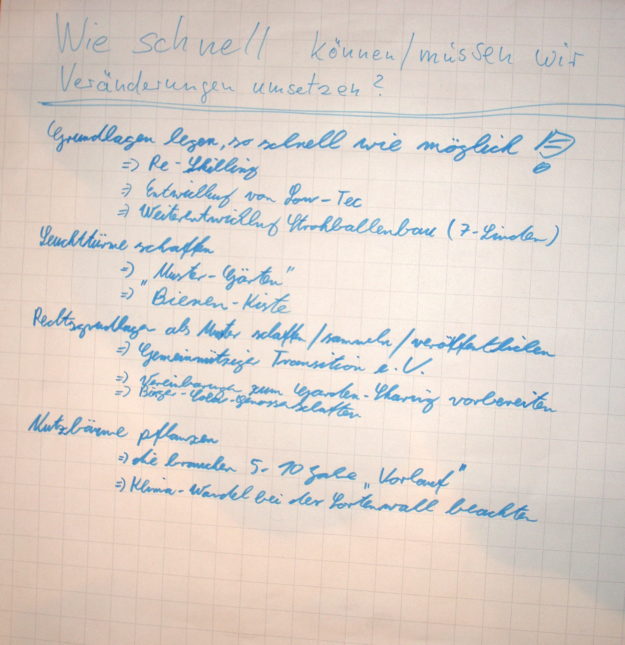 Wie schnell können/müssen wir
Veränderungen umsetzen?
Grundlagen legen, so schnell wie möglich !
=> Re-Skilling
=> Entwicklung von Low-Tec
=> Weiterentwicklung Strohballenbau (7-Linden)
Leuchttürme schaffen
=> „Muster-Gärten"
=> „Bienen-Kiste
Rechtsgrundlagen als Muster schaffen/sammeln/veröffentlichen
=> Gemeinnütziger Transition e.V.
=> Vereinbarungen zum Garden-Sharing vorbereiten
=> Bürger-Solar-Genossenschaften
Nutzbäume pflanzen
=> die brauchen 5-10 Jahre „Vorlauf"
=> Klima-Wandel bei der Sortenwahl beachten